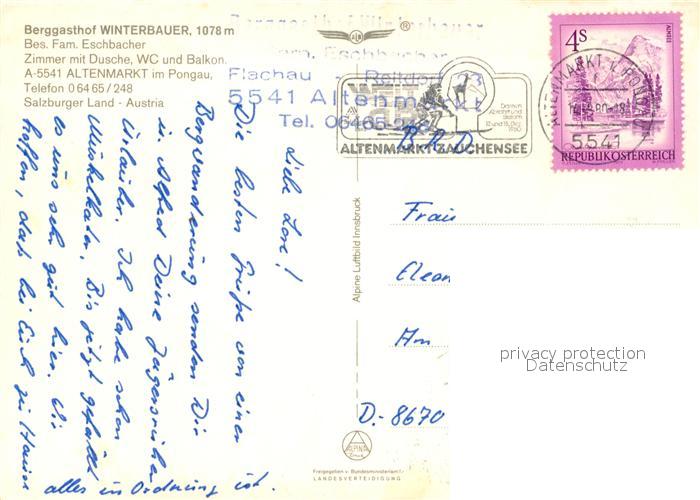 Berggasthof WINTERBAUER, 1078 m
Bes. Fam. Eschbacher
Zimmer mit Dusche, WC und Balkon.
A-5541 ALTENMARKT im Pongau,
Telefon 0 64 65 / 248
Salzburger Land - Austria
Berggasthof Winterbauer
Fam. Eschbacher
Flachau - Reitdorf 23
5541 Altenmarkt
Tel. 06465-248
ALTENMARKT-ZAUCHENSEE
ALTENMARKT I. PONGAU
5541
4S
ALMSEE
REPUBLIK ÖSTERREICH
BRD
Liebe Lore!
Die besten Grüße von einer
Bergwanderung senden Dir
u. Alfred Deine
Urlauber. Ich habe schon
Muskelkater. Bis jetzt gefällt
es uns sehr gut hier. Wir
hoffen, daß bei Euch zu Hause
alles in Ordnung ist.
Alpine Luftbild Innsbruck
Frau
Eleon
Am
D.-8670
privacy protection
Datenschutz
ALPINE
Freigegeben v. Bundesministerium f.
LANDESVERTEIDIGUNG